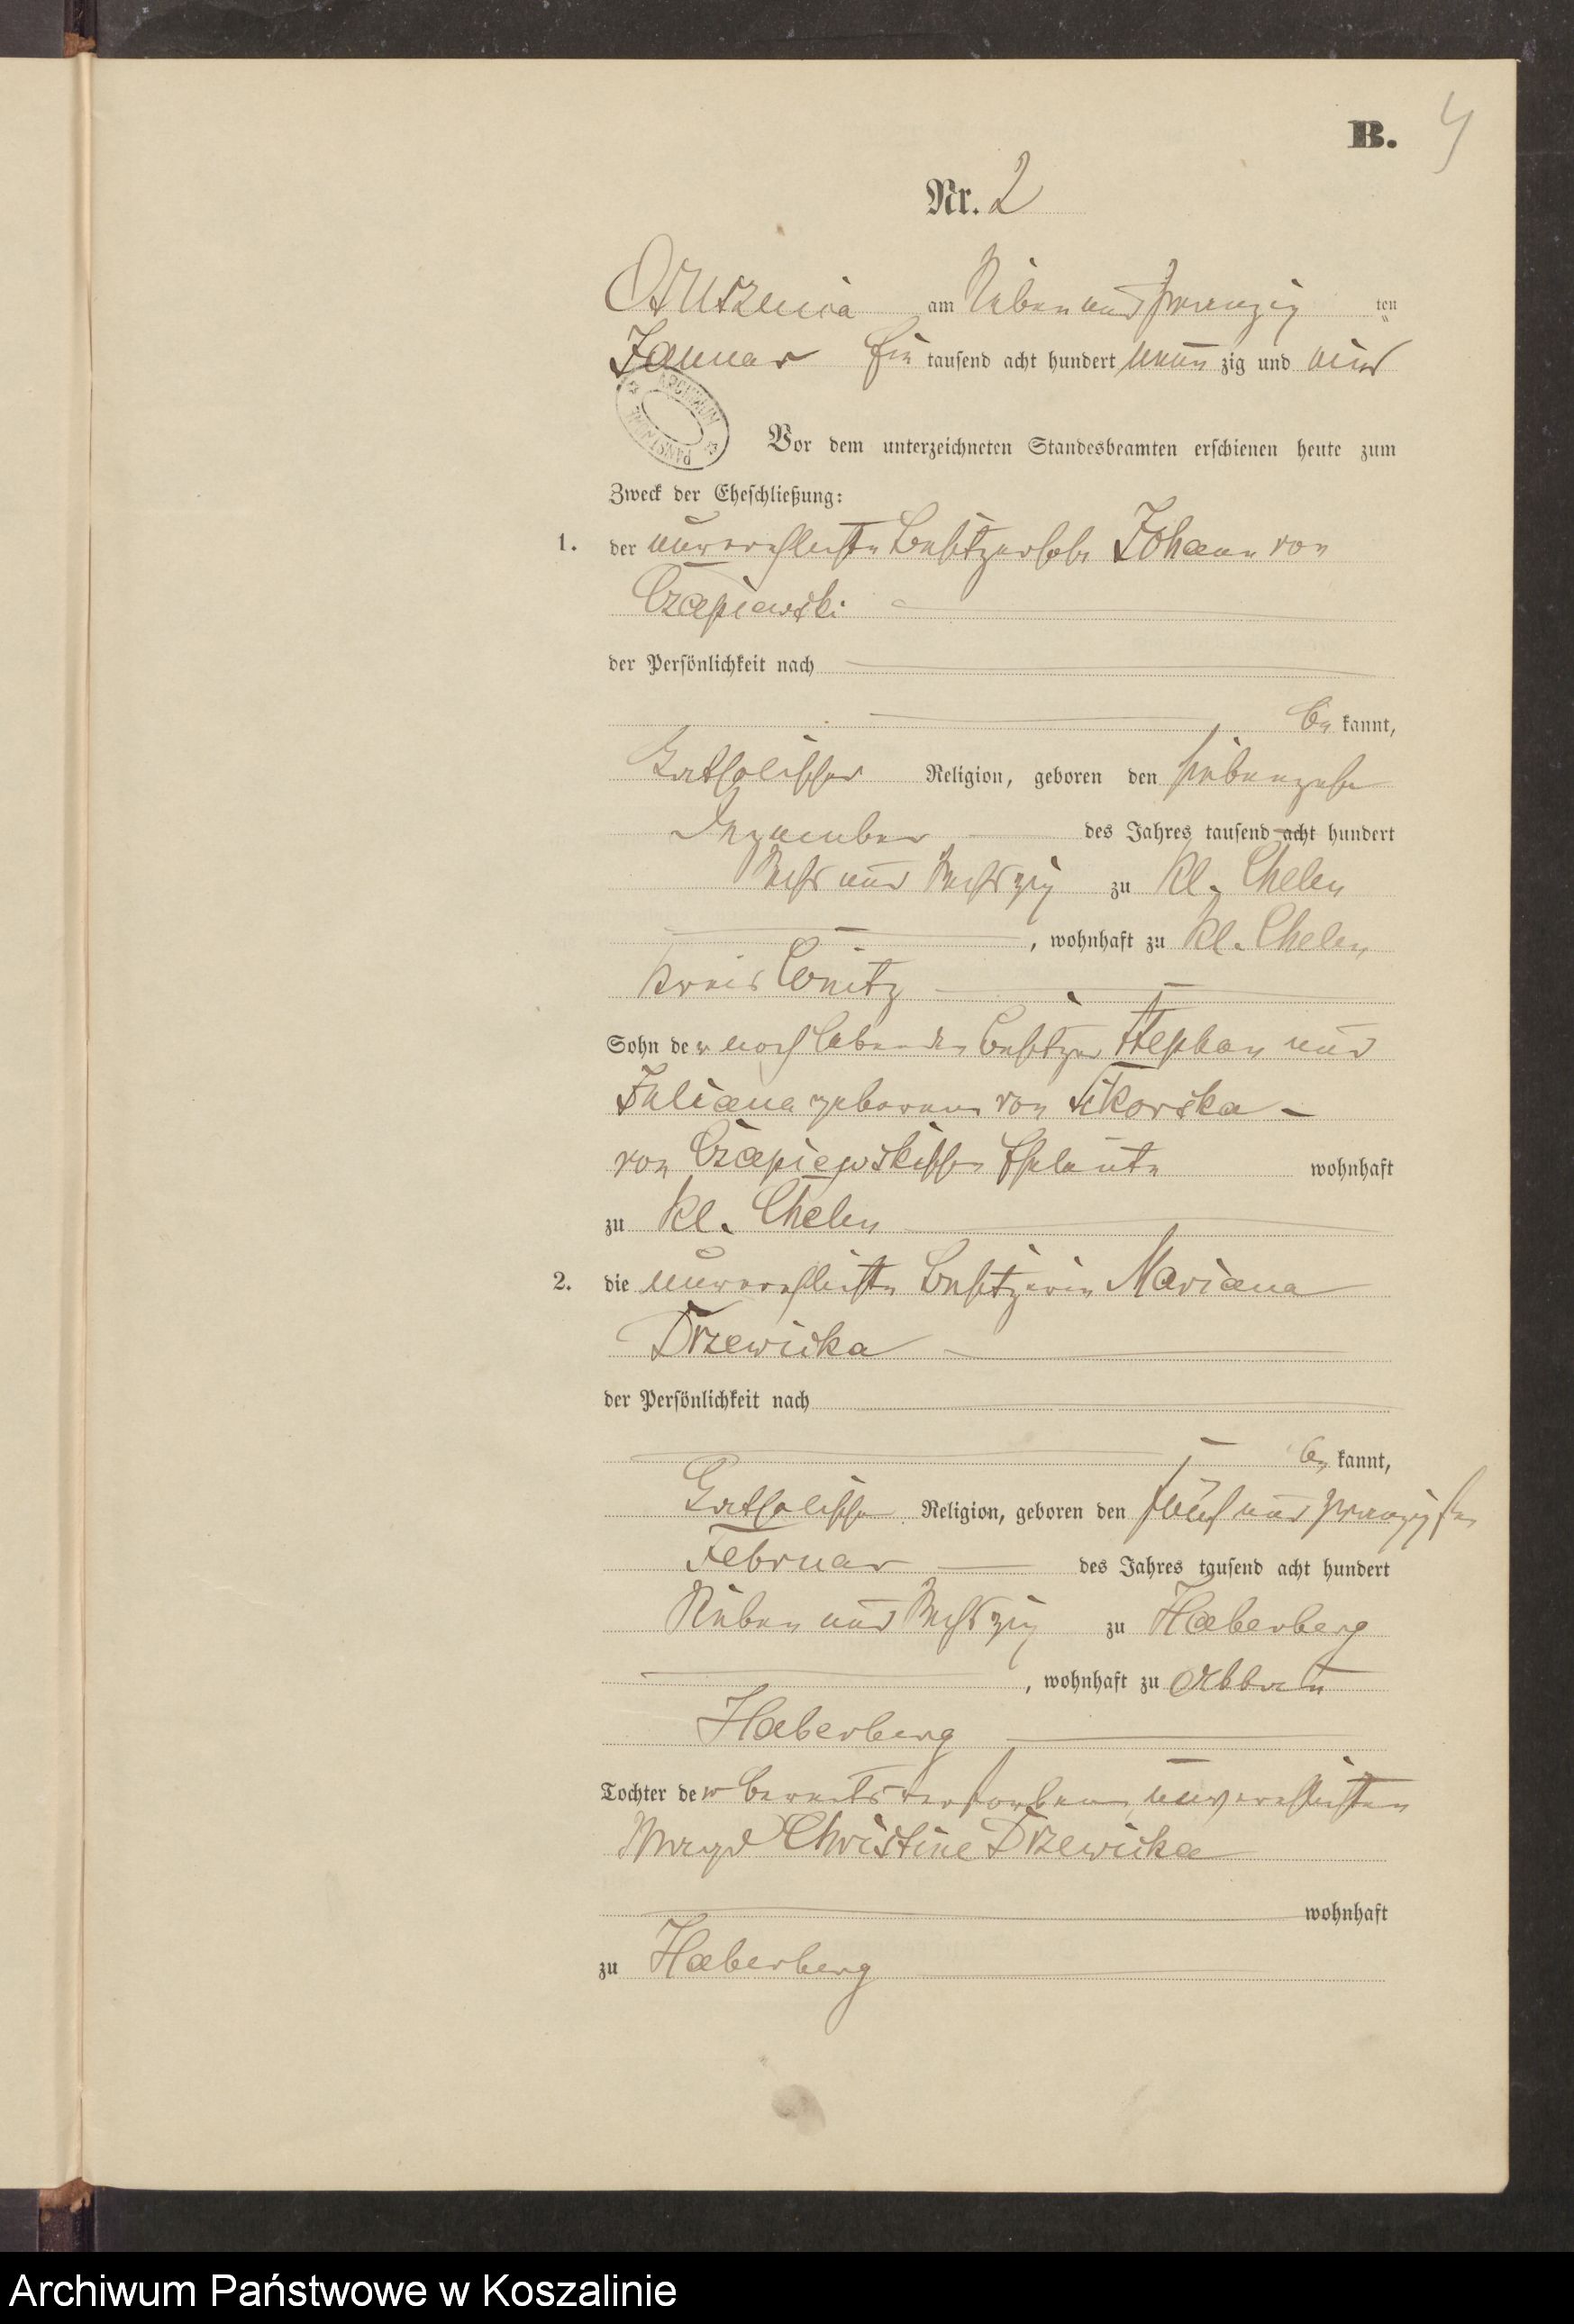 B. 4
Nr. 2
Oſtuszenica am Sieben und zwanzig ten
Januar Ein tauſend acht hundert neun zig und vier
ARCHIWUM PAŃSTWOWE
Vor dem unterzeichneten Standesbeamten erſchienen heute zum
Zweck der Eheſchließung:
1. der unverehlichte Beſitzerſohn Johann von
Czapiewski
der Perſönlichkeit nach
be kannt,
Katholiſcher Religion, geboren den ſiebenzehn
Dezember des Jahres tauſend acht hundert
Sechs und Sechszig zu Kl. Chelm
, wohnhaft zu Kl. Chelm
Kreis Conitz
Sohn der noch lebenden Beſitzer Stephan und
Juliana geborene von Sikorska
von Czapiewskiſchen Eheleute wohnhaft
zu Kl. Chelm
2. die unverehlichte Beſitzerin Mariana
Drzewicka
der Perſönlichkeit nach
be kannt,
Katholiſcher Religion, geboren den fünf und zwanzigſten
Februar des Jahres tauſend acht hundert
Sieben und Sechszig zu Haberberg
, wohnhaft zu Abbau
Haberberg
Tochter der bereits verſtorbenen unverehlichten
Magd Christine Drzewicka
wohnhaft
zu Haberberg
Archiwum Państwowe w Koszalinie